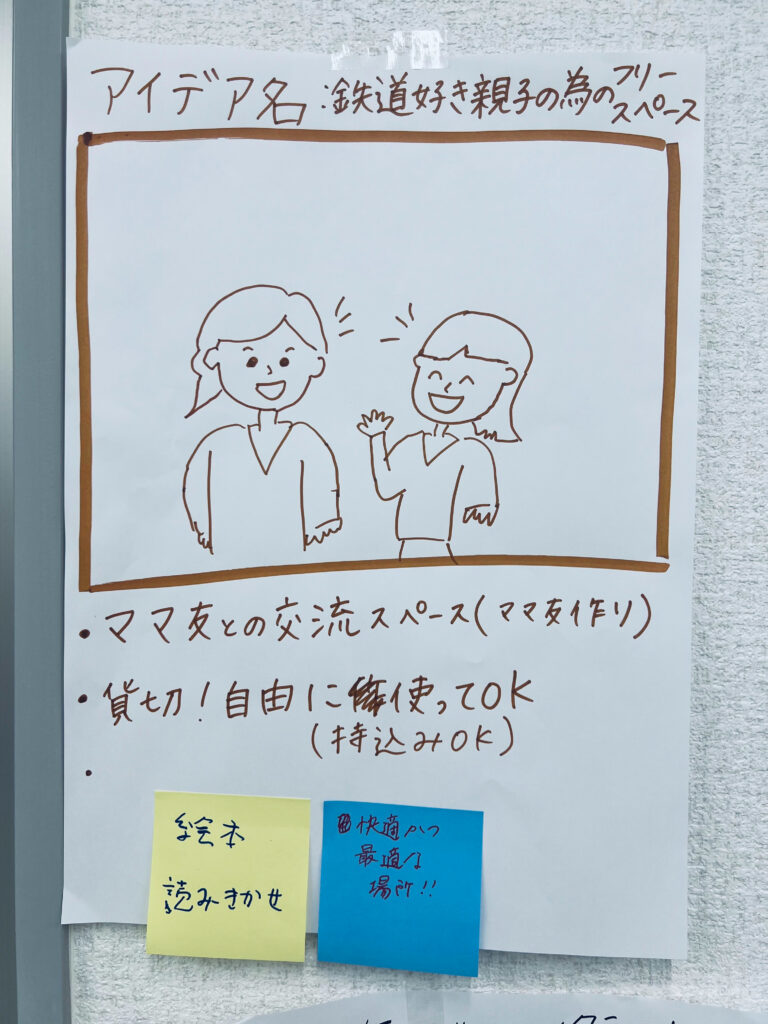 アイデア名:鉄道好き親子の為のフリー
スペース
・ママ友との交流スペース(ママ友作り)
・貸切!自由に使ってOK
(持込みOK)
・
絵本
読みきかせ
快適かつ
最適な
場所!!